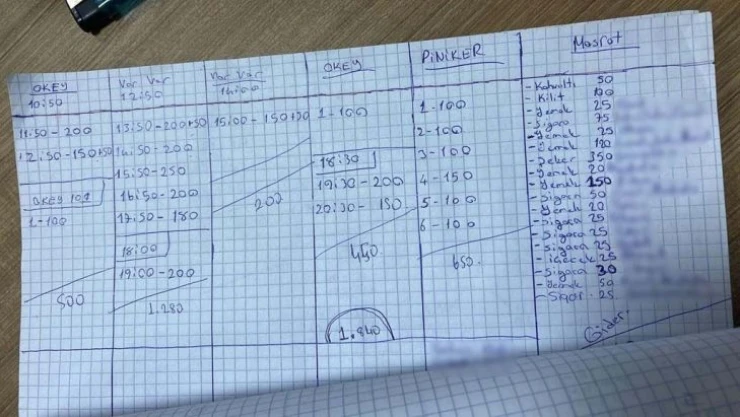 OKEY
10:50
11.50 - 200
12.50 - 150+50
OKEY 101
1 - 100
500
Var Var
12:50
13:50 - 200+50
14:50 - 200
15:50 - 250
16:50 - 200
17:50 - 180
18:00
19:00 - 200
1.280
Var Var
14:00
15:00 - 150+50
200
OKEY
1 - 100
18:30
19:30 - 200
20:30 - 150
450
1.840
PiNiKER
1 - 100
2 - 100
3 - 100
4 - 150
5 - 100
6 - 100
650
Masraf
- Kahvaltı 50
- Kilit 100
- Yemek 25
- Sigara 75
- Yemek 25
- Yemek 120
- Şeker 350
- Yemek 20
- Yemek 150
- Sigara 50
- Yemek 20
- Sigara 25
- Sigara 25
- Sigara 25
- içecek 25
- Sigara 30
- Yemek 50
25
Gider